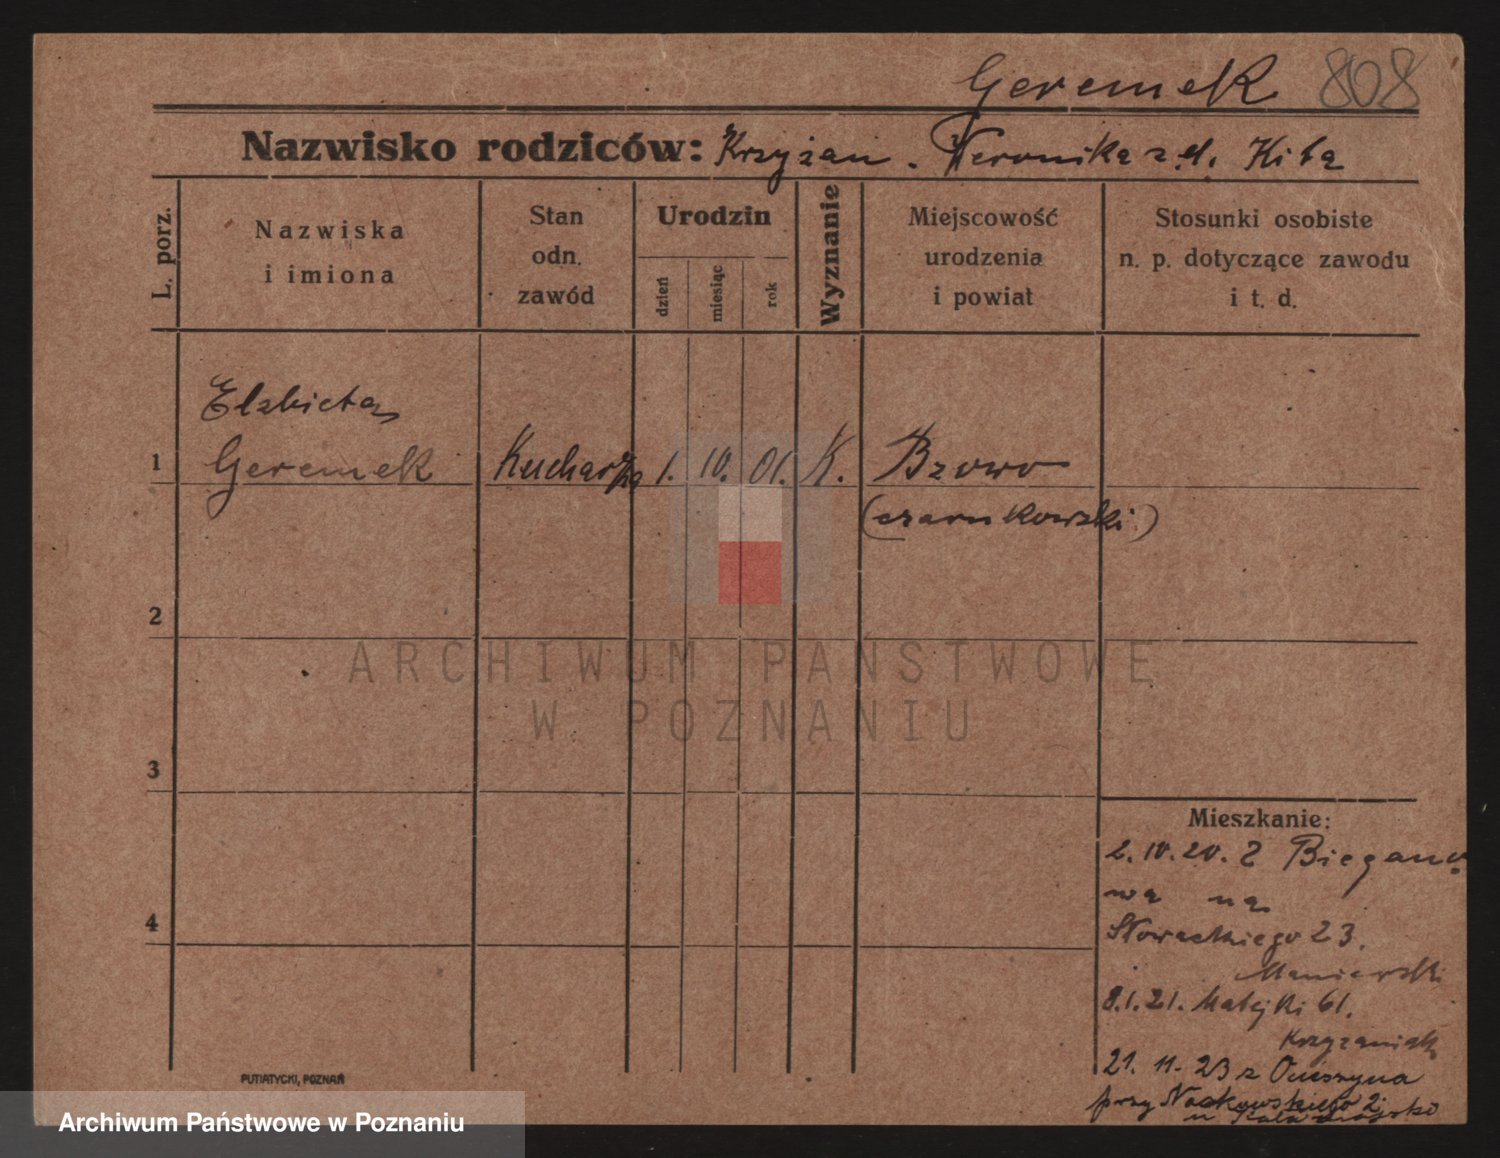 Geremek 808
Nazwisko rodziców: Krzyżan . Weronika z d. Kita
L. porz.
Nazwiska
i imiona
Stan
odn.
zawód
Urodzin
dzień
miesiąc
rok
Wyznanie
Miejscowość
urodzenia
i powiat
Stosunki osobiste
n. p. dotyczące zawodu
i t. d.
Elzbieta
1 Geremek Kucharka 1. 10. 01. K. Bzowo
(czarnkowski)
2
ARCHIWUM PAŃSTWOWE
W POZNANIU
3
Mieszkanie:
2. 10. 20. Z Biegano
wa na
4
Słowackiego 23.
8.1.21. Matejki 61.
Krzyzaniak
21. 11. 23 z
przy 2
PUTIATYCKI, POZNAŃ
Archiwum Państwowe w Poznaniu